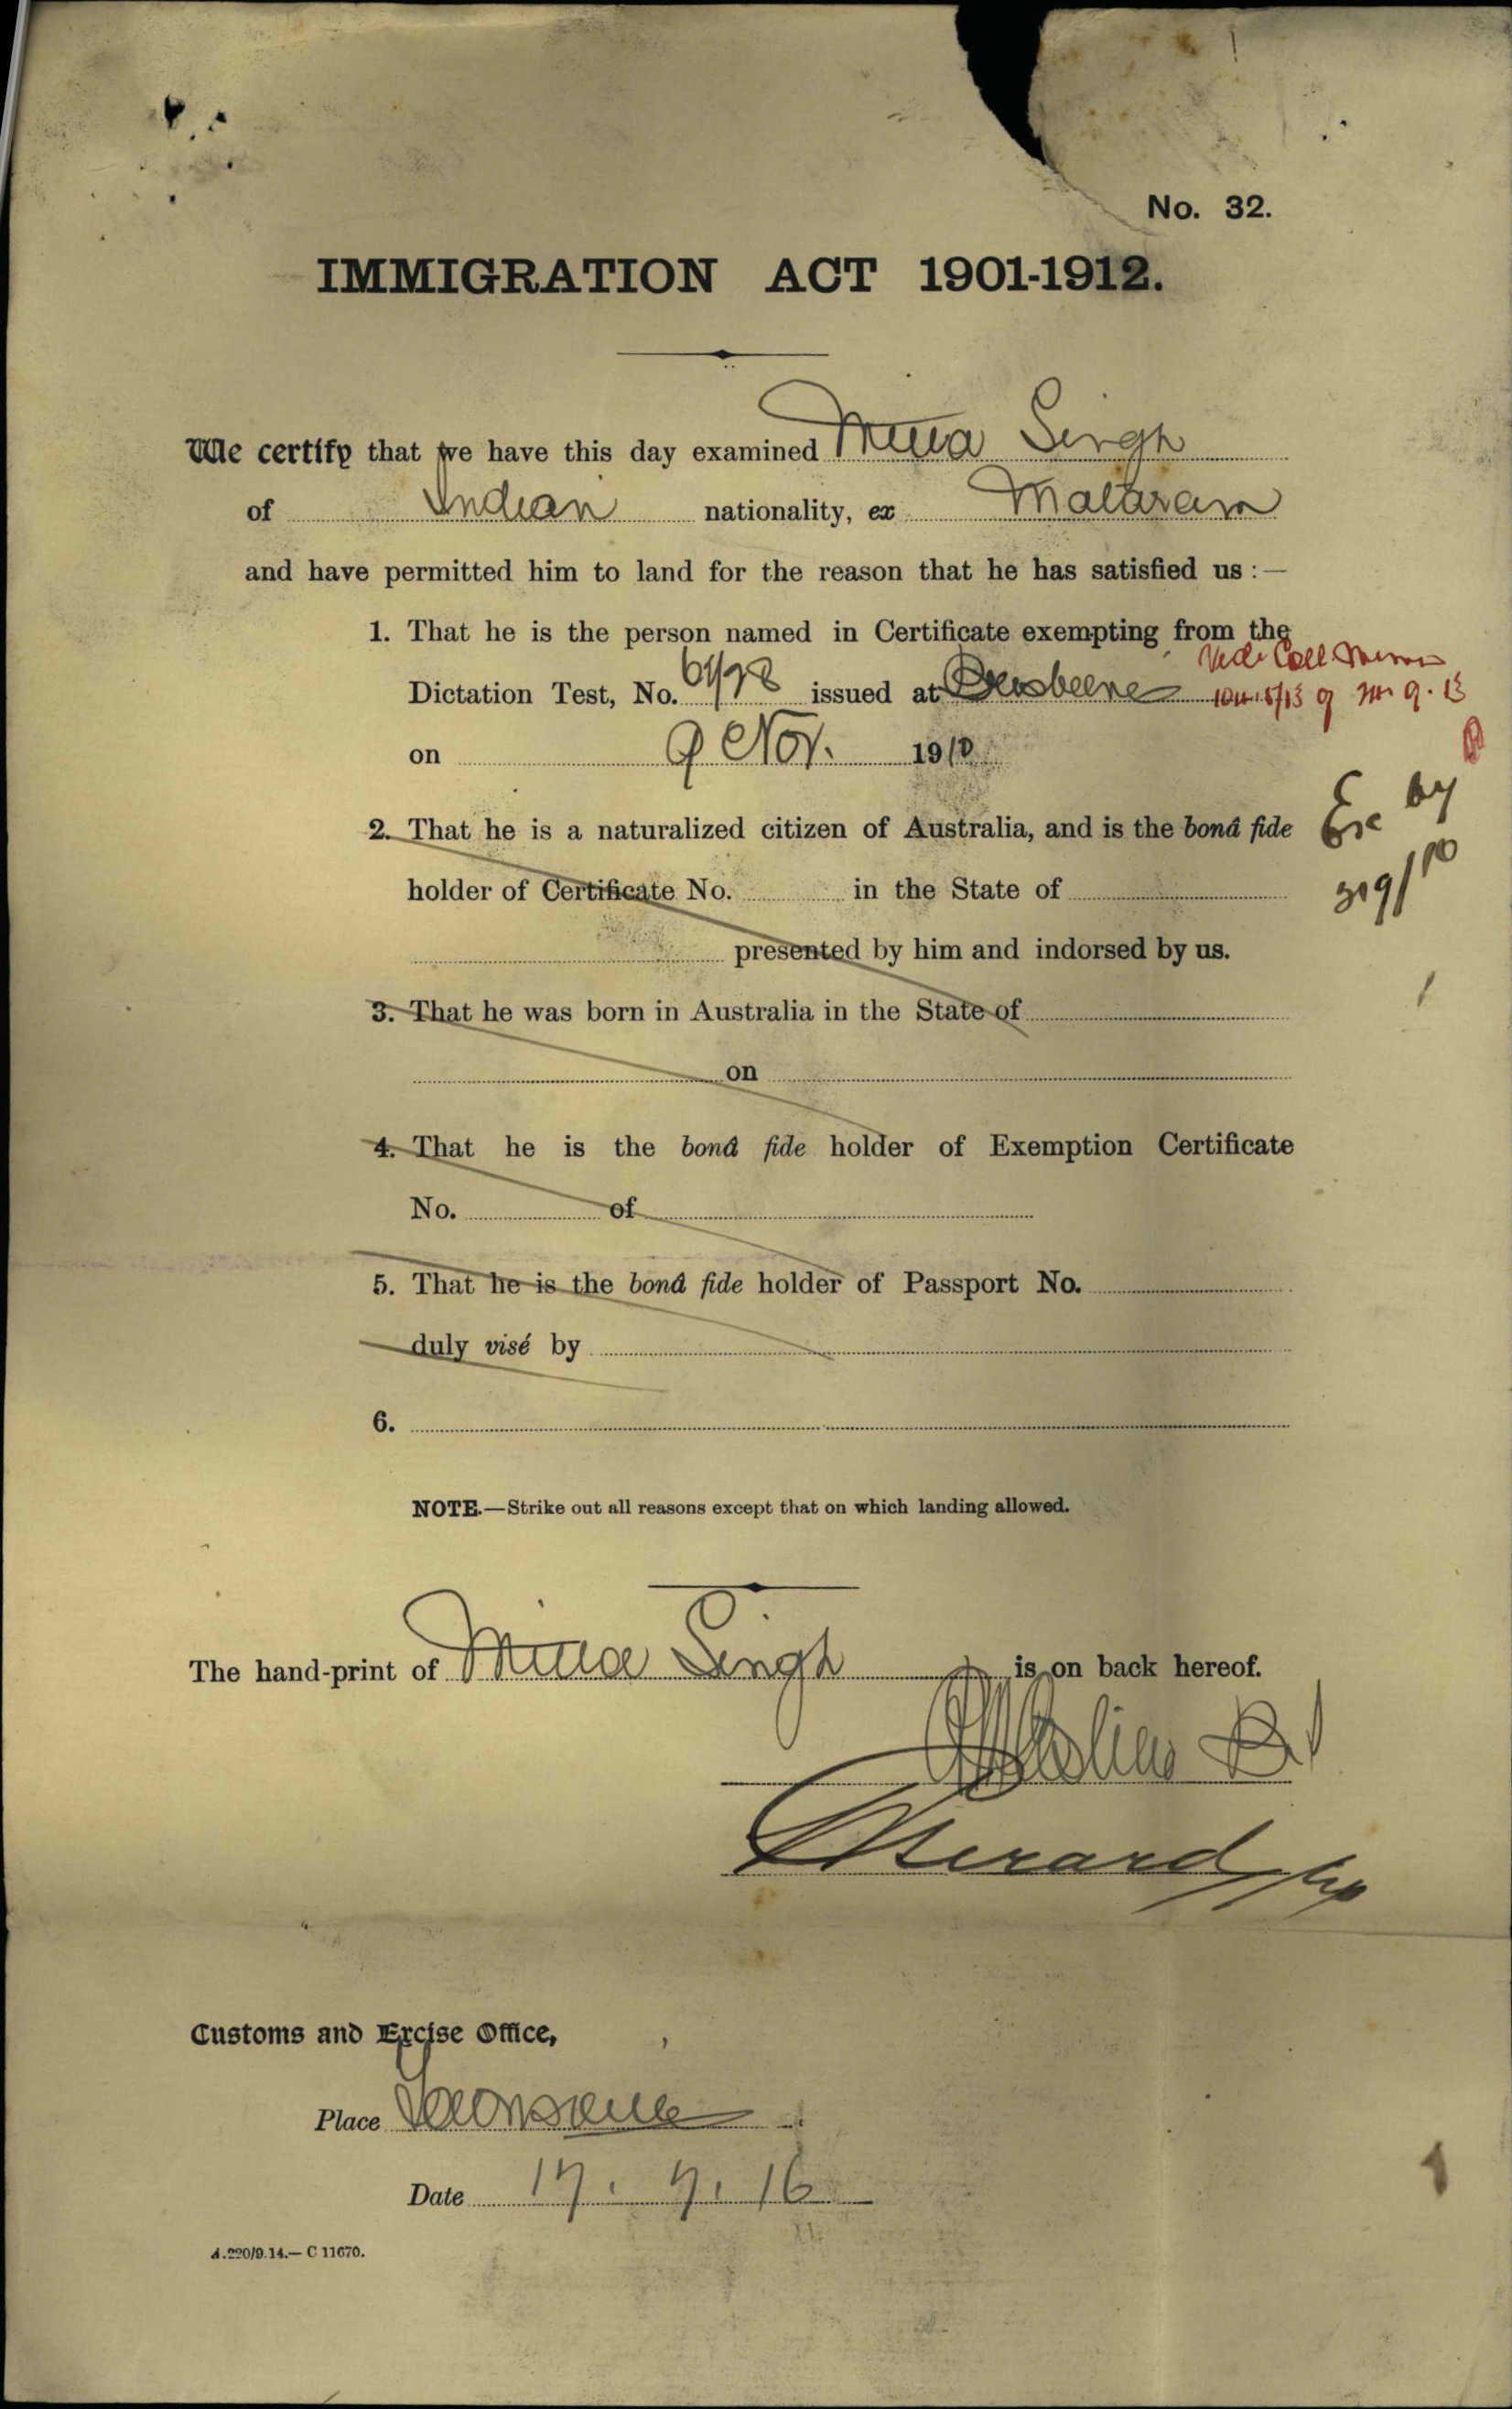 No. 32.
IMMIGRATION ACT 1901-1912.
We certify that we have this day examined Singh
of Indian nationality, ex Mataram
and have permitted him to land for the reason that he has satisfied us :—
1. That he is the person named in Certificate exempting from the
Dictation Test, No. issued at
on 9 Nov. 1910
2. That he is a naturalized citizen of Australia, and is the bonâ fide
holder of Certificate No. in the State of
presented by him and indorsed by us.
3. That he was born in Australia in the State of
on
4. That he is the bonâ fide holder of Exemption Certificate
No. of
5. That he is the bonâ fide holder of Passport No.
duly visé by
6.
NOTE.—Strike out all reasons except that on which landing allowed.
The hand-print of Singh is on back hereof.
Customs and Excise Office,
Place
Date 17. 7. 16
A.220/9.14.—C 11670.